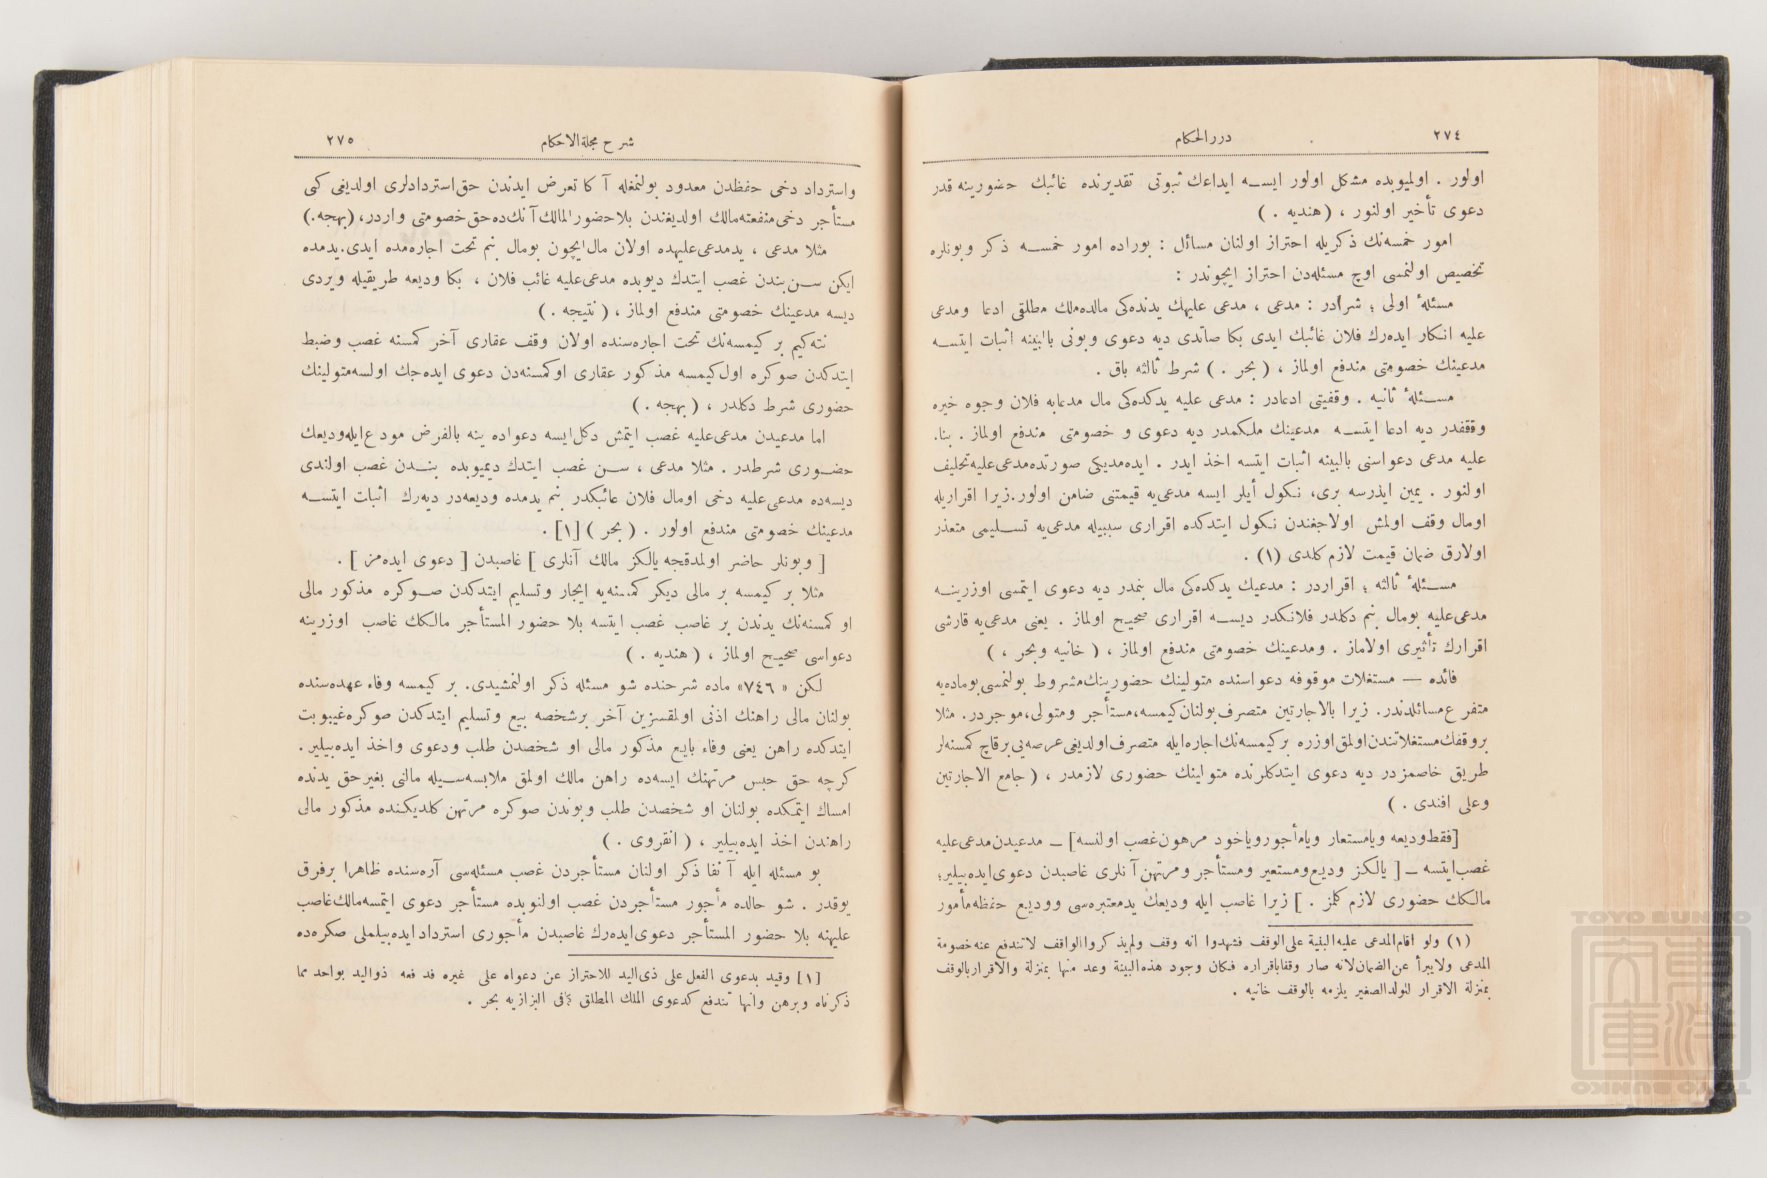 ٢٧٤
درر الحكام
اولور . اولميوبده مشكل اولور ايسه ايداعك ثبوتى تقديرنده غائبك حضورينه قدر
دعوى تأخير اولنور ، ( هنديه . )
امور خمسه‌نك ذكريله احتراز اولنان مسائل : بوراده امور خمسه ذكر وبونلره
تخصيص اولنمسى اوچ مسئله‌دن احتراز ايچوندر :
مسئلهٔ اولى ؛ شرادر : مدعى ، مدعى عليهك يدنده‌كى مالده ملك مطلقى ادعا ومدعى
عليه انكار ايده‌رك فلان غائبك ايدى بكا صاتدى ديه دعوى وبونى بالبينه اثبات ايتسه
مدعينك خصومتى مندفع اولماز ، ( بحر . ) شرط ثالثه باق .
مسئلهٔ ثانيه . وقفيتى ادعادر : مدعى عليه يدكده‌كى مال مدعابه فلان وجوه خيره
وقفدر ديه ادعا ايتسه مدعينك ملكمدر ديه دعوى و خصومتى مندفع اولماز . بناء
عليه مدعى دعواسنى بالبينه اثبات ايتسه اخذ ايدر . ايده‌مديكى صورتده مدعى عليه تحليف
اولنور . يمين ايدرسه برى، نكول ايلر ايسه مدعى‌يه قيمتنى ضامن اولور. زيرا اقراريله
اومال وقف اولمش اولاجغندن نكول ايتدكده اقرارى سببيله مدعى‌يه تسليمى متعذر
اولارق ضمان قيمت لازم كلدى (١) .
مسئلهٔ ثالثه ؛ اقراردر : مدعينك يدكده‌كى مال بنمدر ديه دعوى ايتمسى اوزرينه
مدعى‌عليه بومال بنم دكلدر فلانكدر ديسه اقرارى صحيح اولماز . يعنى مدعى‌يه قارشى
اقرارك تأثيرى اولاماز . ومدعينك خصومتى مندفع اولماز ، ( خانيه وبحر ، )
فائده — مستغلات موقوفه دعواسنده متولينك حضورينك مشروط بولنمسى بوماده‌يه
متفرع مسائلدندر. زيرا بالاجارتين متصرف بولنان كيمسه، مستأجر ومتولى، موجردر. مثلا
بروقفك مستغلاتندن اولمق اوزره بركيمسه‌نك اجاره‌ايله متصرف اولديغى عرصه‌يى برقاچ كمسنه‌لر
طريق خاصمزدر ديه دعوى ايتدكلرنده متولينك حضورى لازمدر ، ( جامع الاجارتين
وعلى افندى . )
[فقط وديعه ويا مستعار ويا مأجور وياخود مرهون غصب اولنسه] ـ مدعيدن مدعى‌عليه
غصب ايتسه ـ [ يالكز وديع ومستعير ومستأجر ومرتهن آنلرى غاصبدن دعوى ايده‌بيلير؛
مالكك حضورى لازم كلمز . ] زيرا غاصب ايله وديعك يدمعتبره‌سى ووديع حفظه مأمور
(١) ولو اقام المدعى عليه البينة على الوقف فشهدوا انه وقف ولم يذكروا الواقف لاتندفع عنه خصومة
المدعى ولا يبرأ عن الضمان لانه صار وقفا باقراره فكان وجود هذه البينة وعدمها بمنزلة والاقرار بالوقف
بمنزلة الاقرار للولد الصغير يلزمه بالوقف خانيه .
شرح مجلة الاحكام
٢٧٥
واسترداد دخى حفظدن معدود بولنمغله آكا تعرض ايدندن حق استردادلرى اولديغى كبى
مستأجر دخى منفعته مالك اولديغندن بلا حضور المالك آنك‌ده حق خصومتى واردر، (بهجه.)
مثلا مدعى ، يدمدعى‌عليهده اولان مال ايچون بومال بنم تحت اجاره‌مده ايدى. يدمده
ايكن سن بندن غصب ايتدك ديوبده مدعى‌عليه غائب فلان ، بكا وديعه طريقيله ويردى
ديسه مدعينك خصومتى مندفع اولماز ، ( نتيجه . )
نته‌كيم بر كيمسه‌نك تحت اجاره‌سنده اولان وقف عقارى آخر كمسنه غصب وضبط
ايتدكدن صوكره اول كيمسه مذكور عقارى اوكمسنه‌دن دعوى ايده‌جك اولسه متولينك
حضورى شرط دكلدر ، ( بهجه . )
اما مدعيدن مدعى‌عليه غصب ايتمش دكل ايسه دعواده ينه بالفرض مودع ايله وديعك
حضورى شرطدر . مثلا مدعى ، سن غصب ايتدك ديميوبده بندن غصب اولندى
ديسه‌ده مدعى‌عليه دخى اومال فلان غائبكدر بنم يدمده وديعه‌در ديه‌رك اثبات ايتسه
مدعينك خصومتى مندفع اولور . ( بحر ) [١] .
[ وبونلر حاضر اولمدقجه يالكز مالك آنلرى ] غاصبدن [ دعوى ايده‌مز ] .
مثلا بر كيمسه بر مالى ديكر كمسنه‌يه ايجار وتسليم ايتدكدن صوكره مذكور مالى
او كمسنه‌نك يدندن بر غاصب غصب ايتسه بلا حضور المستأجر مالكك غاصب اوزرينه
دعواسى صحيح اولماز ، ( هنديه . )
لكن «٧٤٦» ماده شرحنده شو مسئله ذكر اولنمشيدى. بر كيمسه وفاء عهده‌سنده
بولنان مالى راهنك اذنى اولمقسزين آخر برشخصه بيع وتسليم ايتدكدن صوكره غيبوبت
ايتدكده راهن يعنى وفاء بايع مذكور مالى او شخصدن طلب ودعوى واخذ ايده‌بيلير.
كرچه حق حبس مرتهنك ايسه‌ده راهن مالك اولمق ملابسه‌سيله مالنى بغيرحق يدنده
امساك ايتمكده بولنان او شخصدن طلب وبوندن صوكره مرتهن كلديكنده مذكور مالى
راهندن اخذ ايده‌بيلير ، ( انقروى . )
بو مسئله ايله آنفا ذكر اولنان مستأجردن غصب مسئله‌سى آره‌سنده ظاهرا برفرق
يوقدر . شو حالده مأجور مستأجردن غصب اولنوبده مستأجر دعوى ايتمسه مالك غاصب
عليهنه بلا حضور المستأجر دعوى ايده‌رك غاصبدن مأجورى استرداد ايده‌بيلملى صكره‌ده
[١] وقيد بدعوى الفعل على ذى اليد للاحتراز عن دعواه على غيره فدفعه ذواليد بواحد مما
ذكرناه وبرهن وانها تندفع كدعوى الملك المطلق كما فى البزازيه بحر .
TOYO BUNKO
東洋文庫
TOYO BUNKO